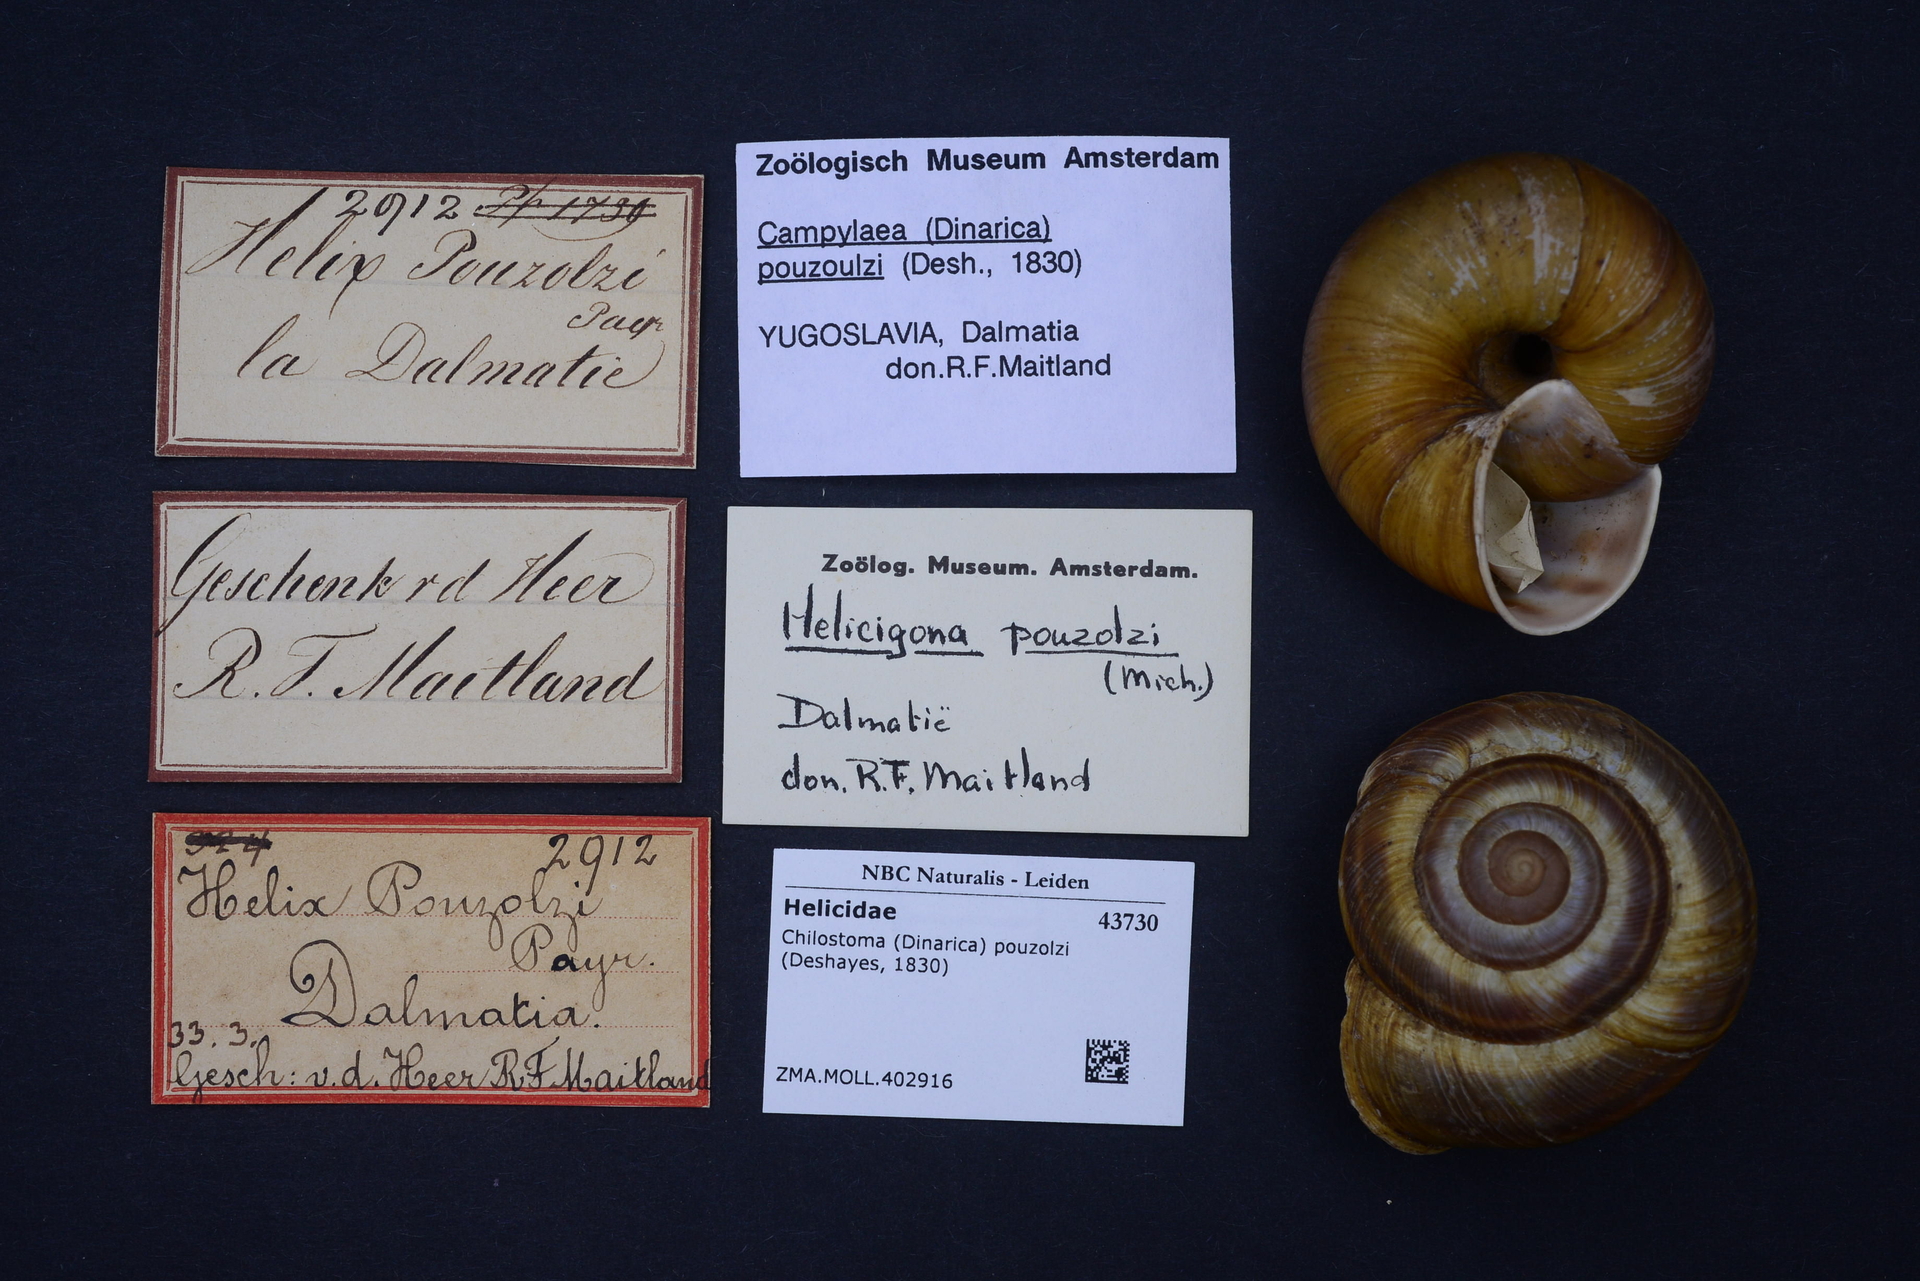 2912
Helix Pouzolzi
Payr
la Dalmatie
Geschenk v d Heer
R. T. Maitland
2912
Helix Pouzolzi
Payr.
Dalmatia.
33. 3.
Gesch: v. d. Heer RF Maitland
Zoölogisch Museum Amsterdam
Campylaea (Dinarica)
pouzoulzi (Desh., 1830)
YUGOSLAVIA, Dalmatia
don.R.F.Maitland
Zoölog. Museum. Amsterdam.
Helicigona pouzolzi
(Mich.)
Dalmatië
don. R.F. Maitland
NBC Naturalis - Leiden
Helicidae
43730
Chilostoma (Dinarica) pouzolzi
(Deshayes, 1830)
ZMA.MOLL.402916